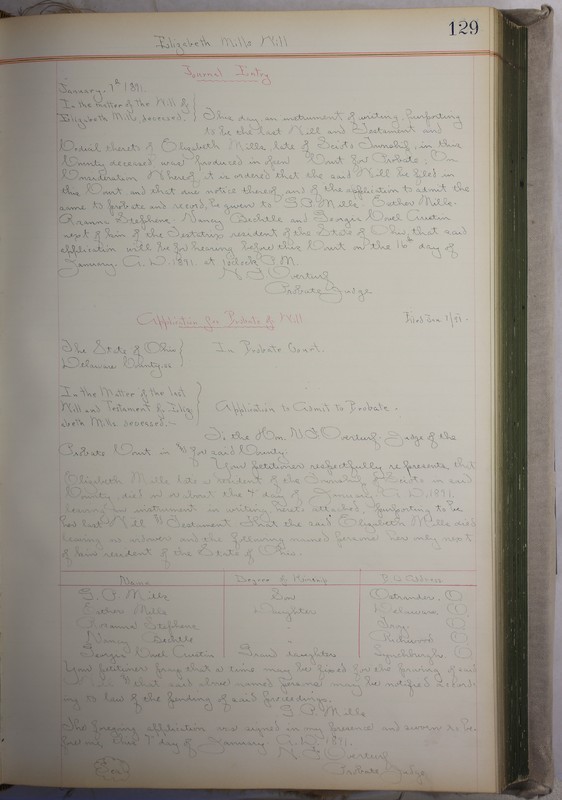 129
Elizabeth Mills Will
Journal Entry
January 7th 1891.
In the matter of the Will of
Elizabeth Mills, deceased.
This day an instrument of writing, purporting
to be the last Will and Testament and
Codicil thereto of Elizabeth Mills late of Scioto Township, in this
County deceased was produced in open Court for Probate; On
Consideration Whereof, it is ordered that the said Will be filed in
this Court and that due notice thereof, and of the application to admit the
same to probate and record, be given to S. P. Mills Esther Mills
Rosanna Stephens Nancy Bechtle and Georgia Dell Austin
next of kin of the Testatrix resident of the State of Ohio, that said
application will be for hearing before this Court on the 16th day of
January A. D. 1891. at 1 o'clock P. M.
N F Overturf
Probate Judge
Application for Probate of Will
Filed Jan 7/91.
The State of Ohio
Delaware County ss
In Probate Court.
In the Matter of the last
Will and Testament of Eliz-
abeth Mills deceased.
Application to Admit to Probate.
To the Hon. N F Overturf, Judge of the
Probate Court in & for said County:
Your petitioner respectfully represents, that
Elizabeth Mills late a resident of the Township of Scioto in said
County died on or about the day of January A. D. 1891.
leaving an instrument in writing hereto attached, purporting to be
her last Will & Testament That the said Elizabeth Mills died
leaving no widower and the following named persons her only next
of kin resident of the State of Ohio.
Name Degree of Kinship P. O. Address
S. P. Mills Son Ostrander, O
Esther Mills Daughter Delaware O.
Rosanna Stephens " O
Nancy Bechtle " Kirkwood O
Georgia Dell Austin Grand daughter Lynchburgh O
Your petitioner prays that a time may be fixed for the proving of said
Will & that said above named persons may be notified accord-
ing to law of the pending of said proceedings.
S. P. Mills
The foregoing application was signed in my presence and sworn to be-
fore me, this 7 day of January A. D. 1891.
N F Overturf
Probate Judge
Seal